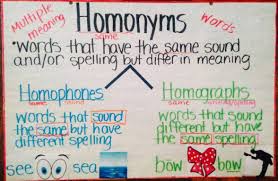 Multiple meaning Homonyms Words
same
•Words that have the same sound
and/or spelling but differ in meaning
Homophones
same sound
words that sound
the same but have
different spelling
see sea
Homographs
same spelling
words that sound
different but have
same spelling
bow bow